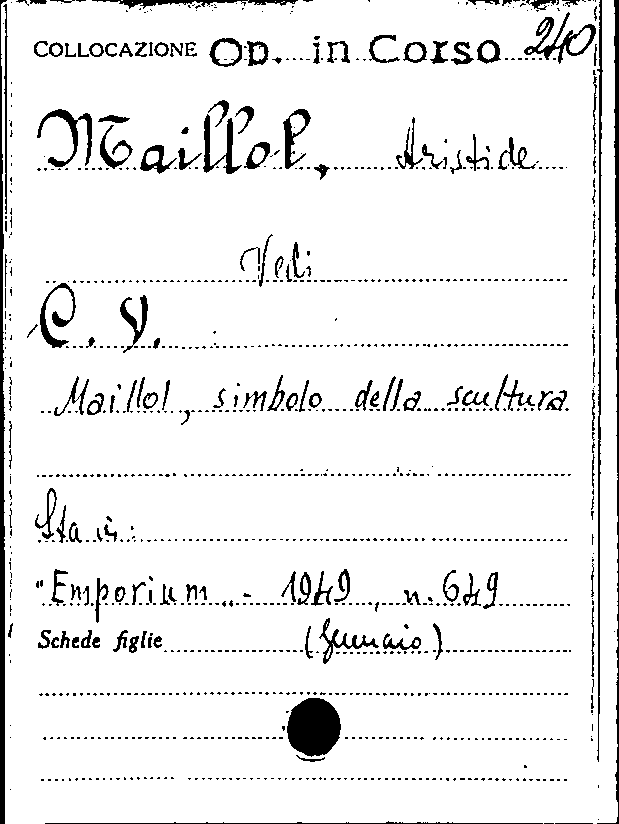 COLLOCAZIONE Op. in Corso 240
Maillol, Aristide
Vedi
C. V.
Maillol, simbolo della scultura
Sta in:
"Emporium„ - 1949, n. 649
Schede figlie (Gennaio)